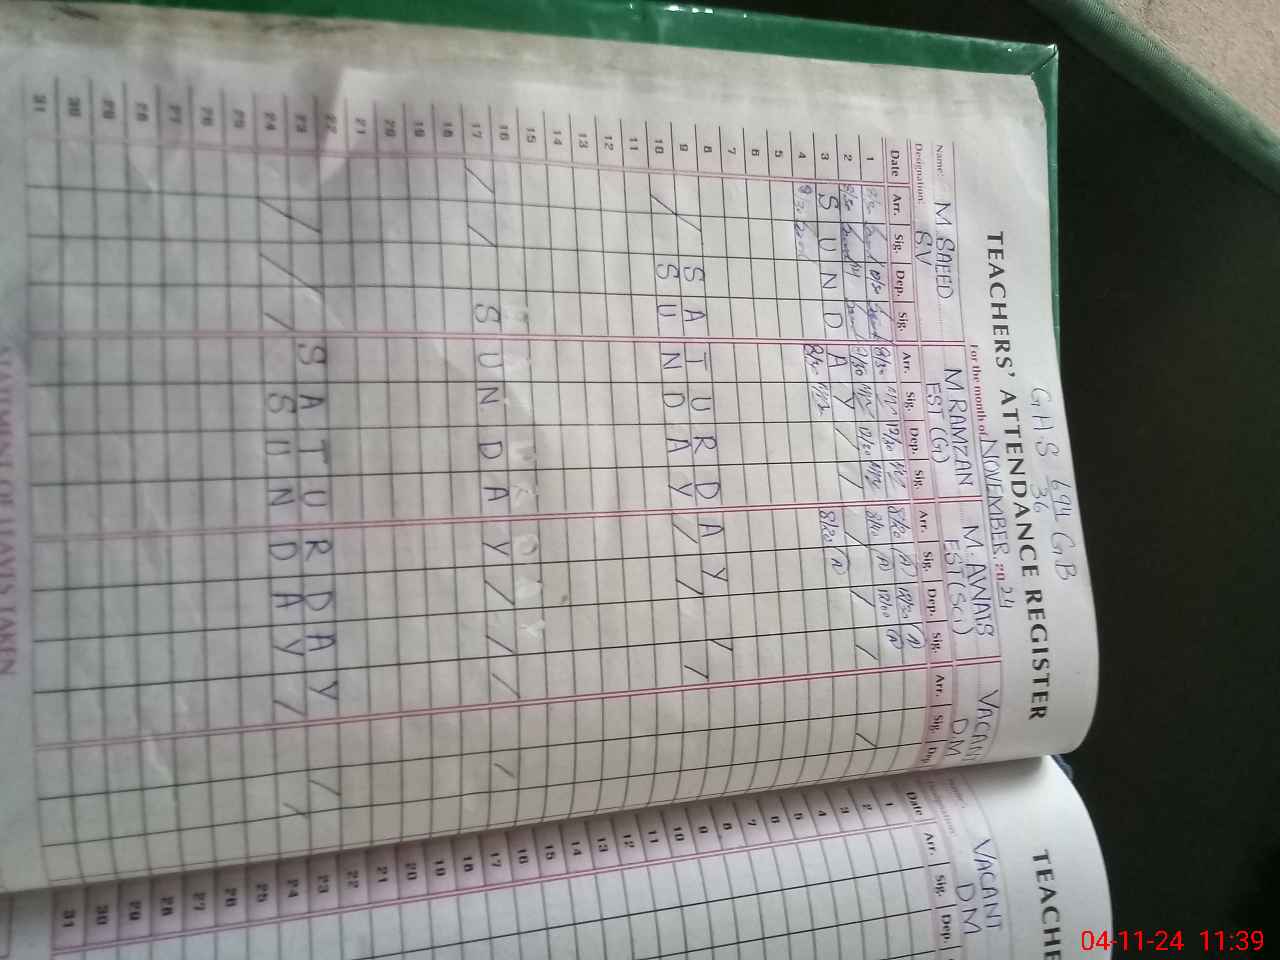 GHS 694/36 GB
TEACHERS' ATTENDANCE REGISTER
For the month of NOVEMBER 2024
Name: M SAEED M RAMZAN M. AWAIS VACANT
Designation: SV EST (G) EST (Sci) DM
Date Arr. Sig. Dep. Sig. Arr. Sig. Dep. Sig. Arr. Sig. Dep. Sig. Arr. Sig. Dep.
1 8/30 12/30 8/20
2 8/30 12/30
3 SUNDAY
4 8/30 8/20
5
6
7
8
9 SATURDAY
10 SUNDAY
11
12
13
14
15
16
17 SUNDAY
18
19
20
21
22
23 SATURDAY
24 SUNDAY
25
26
27
28
29
30
31
STATEMENT OF LEAVES TAKEN
TEACHE
VACANT
DM
Date Arr. Sig. Dep.
1
2
3
4
5
6
7
8
9
10
11
12
13
14
15
16
17
18
19
20
21
22
23
24
25
26
27
28
29
30
31
04-11-24 11:39